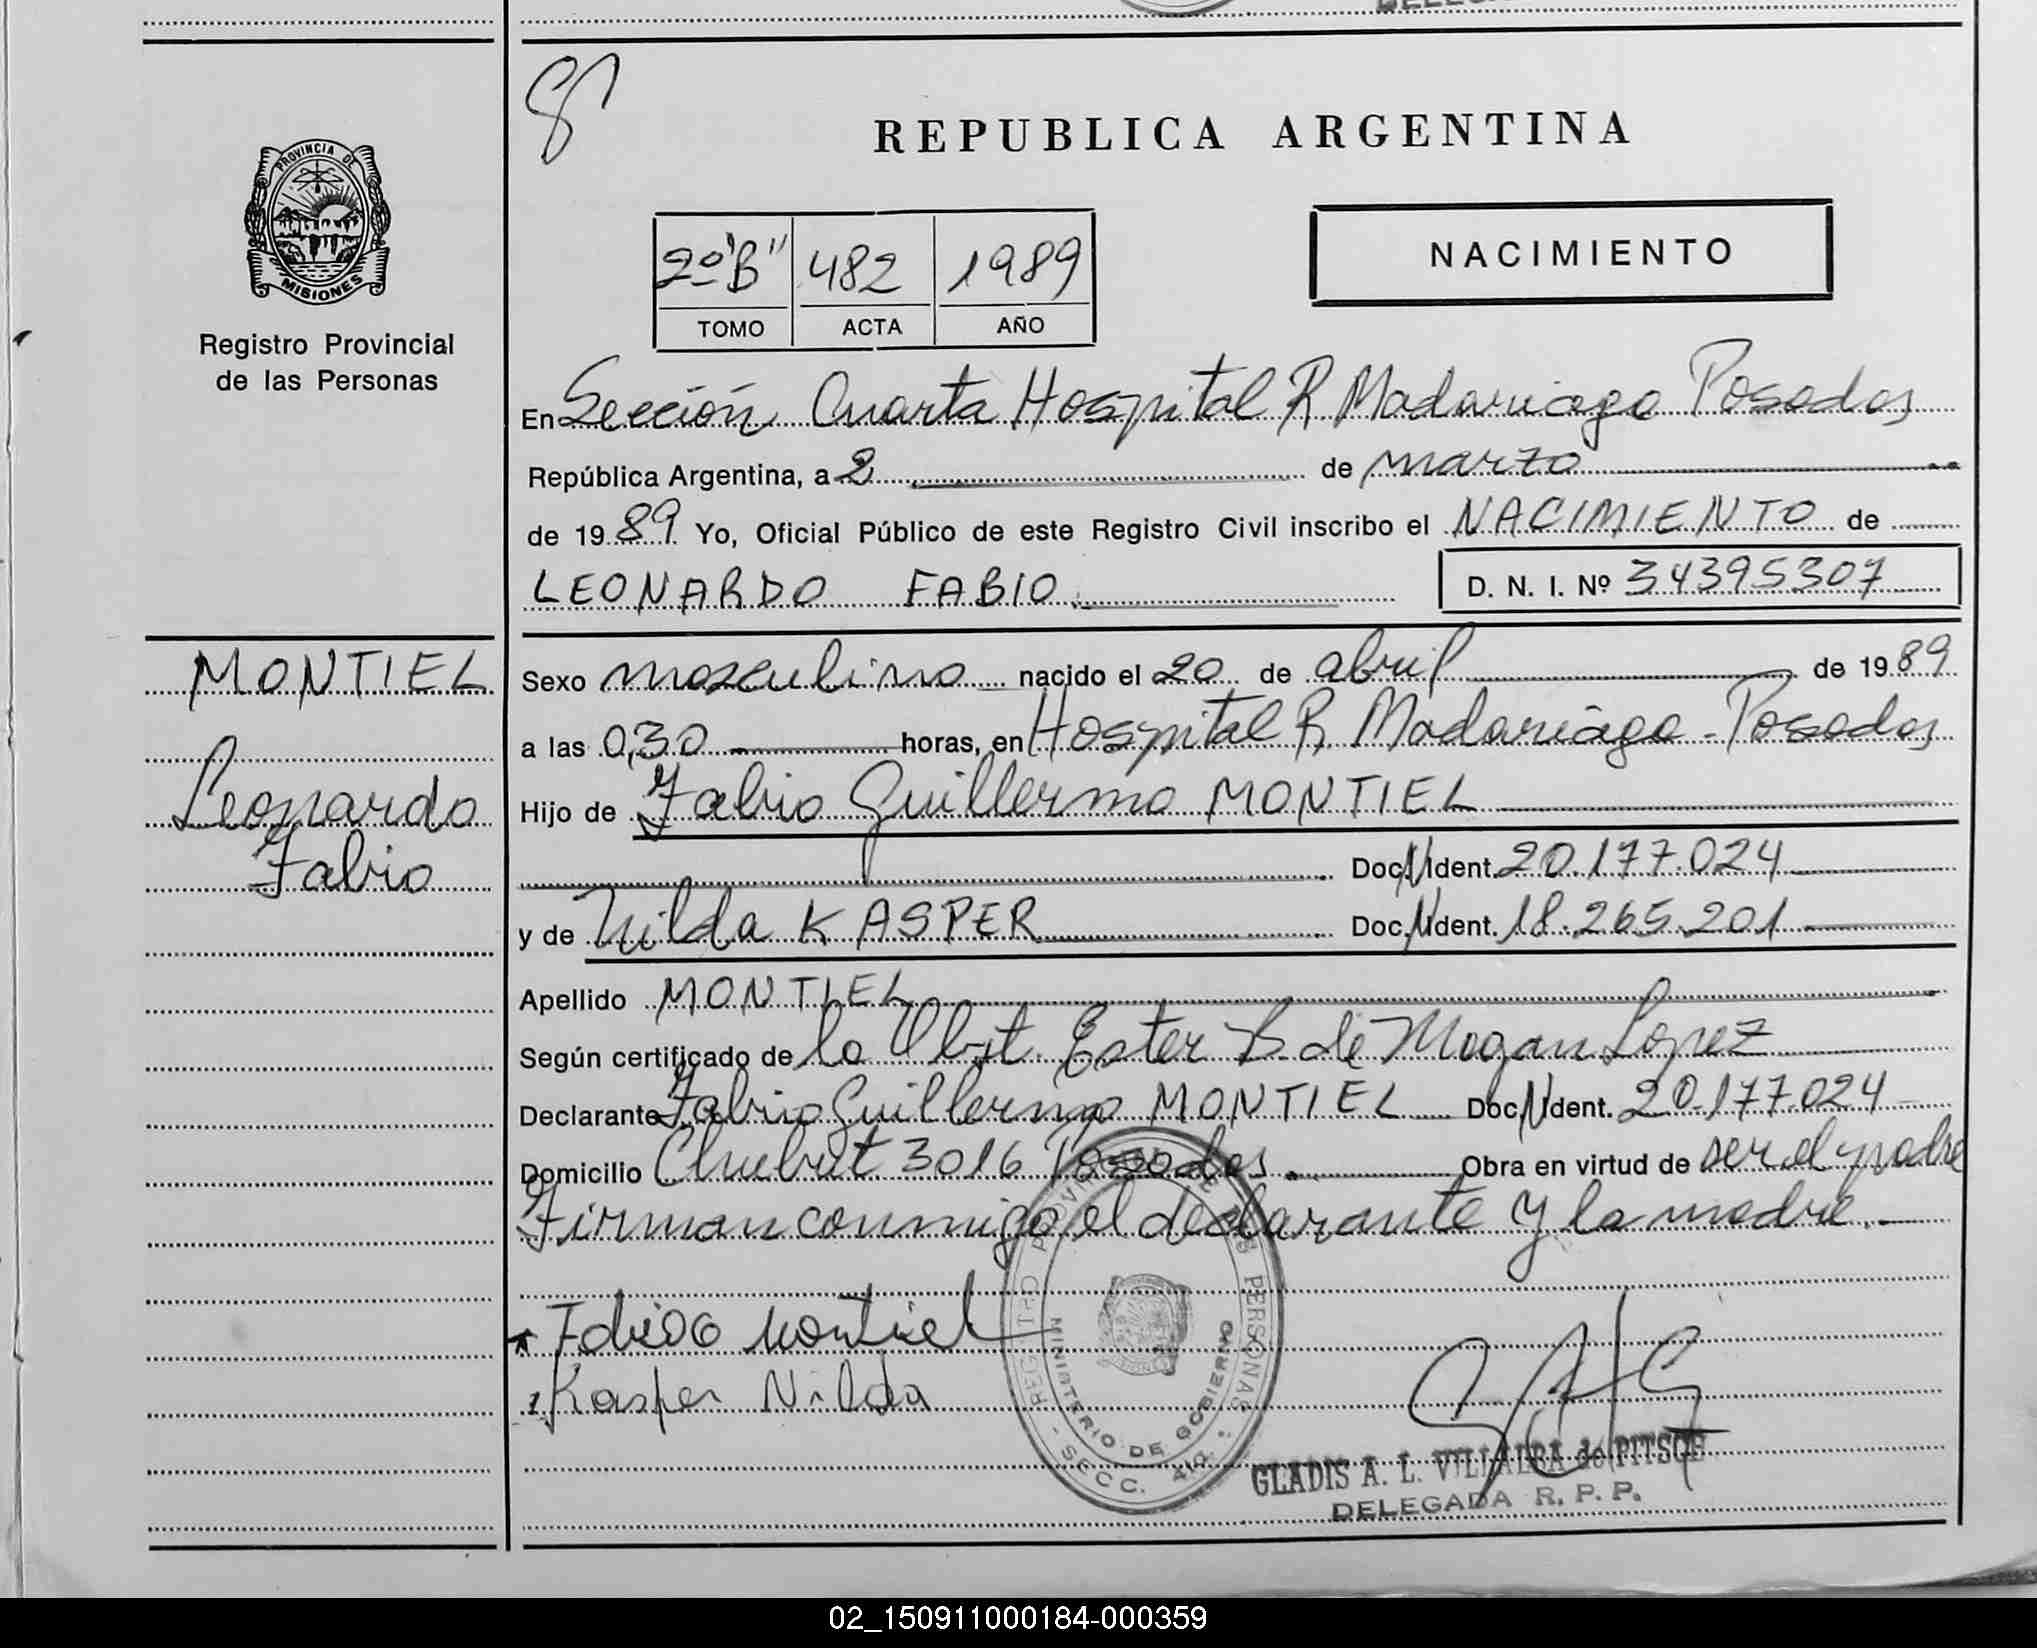 DELEGA
8
PROVINCIA DE
MISIONES
Registro Provincial
de las Personas
REPUBLICA ARGENTINA
2º "B" 482 1989
TOMO ACTA AÑO
NACIMIENTO
En Sección Cuarta Hospital R Madariaga Posadas
República Argentina, a 2 de marzo
de 1989 Yo, Oficial Público de este Registro Civil inscribo el NACIMIENTO de
LEONARDO FABIO D. N. I. Nº 34395307
MONTIEL
Leonardo
Fabio
Sexo masculino nacido el 20 de abril de 1989
a las 0,30 horas, en Hospital R Madariaga - Posadas
Hijo de Fabio Guillermo MONTIEL
Doc. N Ident. 20.177.024
y de Nilda KASPER Doc. N Ident. 18.265.201
Apellido MONTIEL
Según certificado de la Obst. Ester B. de Mogan Lopez
Declarante Fabio Guillermo MONTIEL Doc. N Ident. 20.177.024
Domicilio Chubut 3016 Posadas. Obra en virtud de ser el padre
Firman conmigo el declarante y la madre.-
Fabio G Montiel
Kasper Nilda
REGISTRO PROVINCIAL DE LAS PERSONAS - SECC. 4ta.
MINISTERIO DE GOBIERNO
GLADIS A. L. VILLALBA de PITSCH
DELEGADA R. P. P.
02_150911000184-000359